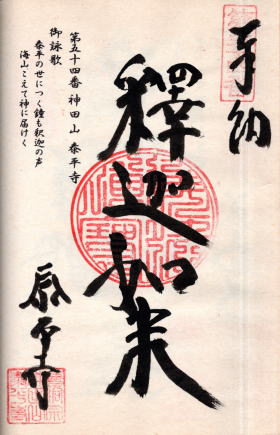 奉納
釋迦如来
第五十四番 神田山 泰平寺
御詠歌
泰平の世につく鐘も釈迦の声
海山こえて神に届けく
泰平寺